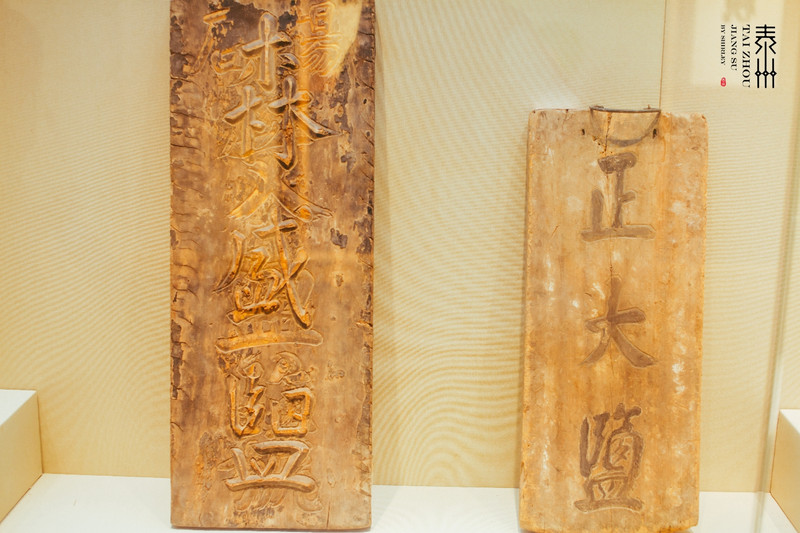 盛鹽
正大鹽
泰州
TAI ZHOU
JIANG SU
BY SHIRLEY